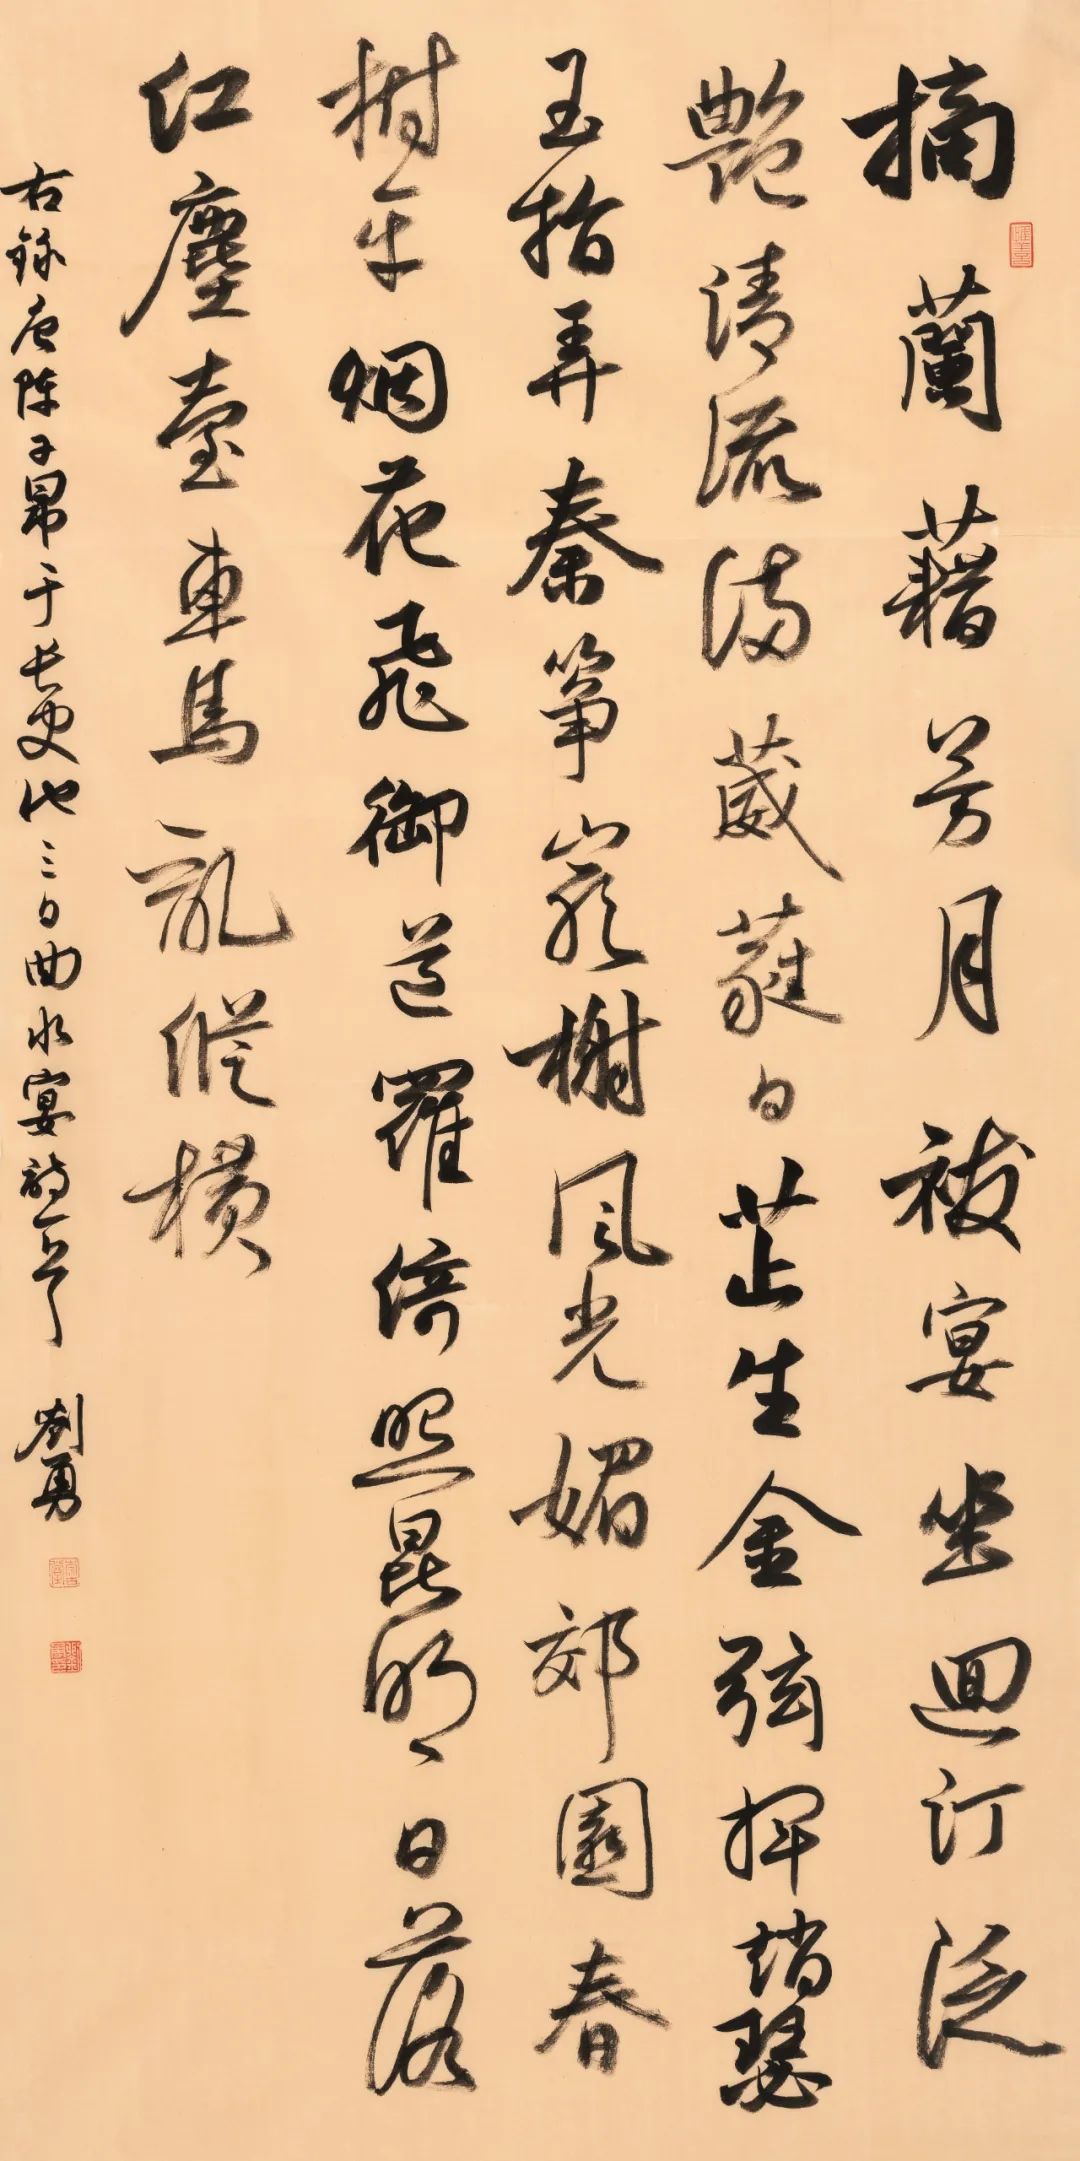 摘蘭藉芳月祓宴坐迴汀泛
艷清流滿葳蕤白芷生金弦揮趙瑟
玉指弄秦筝巖榭風光媚郊園春
樹平烟花飛御道羅綺照昆明日落
红塵臺車馬亂縱橫
右録唐陳子昂于長史池三日曲水宴詩 劉勇